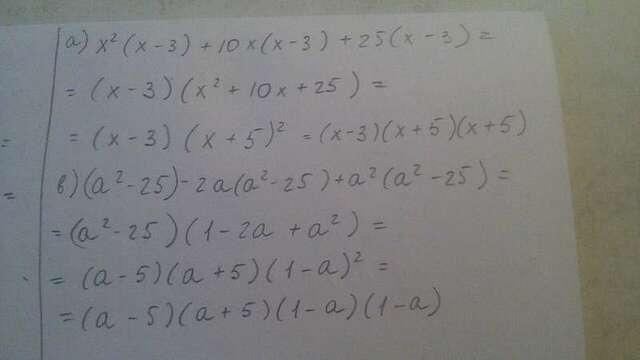 а) x²(x-3)+10x(x-3)+25(x-3)=
=(x-3)(x²+10x+25)=
=(x-3)(x+5)²=(x-3)(x+5)(x+5)
в)(a²-25)-2a(a²-25)+a²(a²-25)=
=(a²-25)(1-2a+a²)=
=(a-5)(a+5)(1-a)²=
=(a-5)(a+5)(1-a)(1-a)
=
=